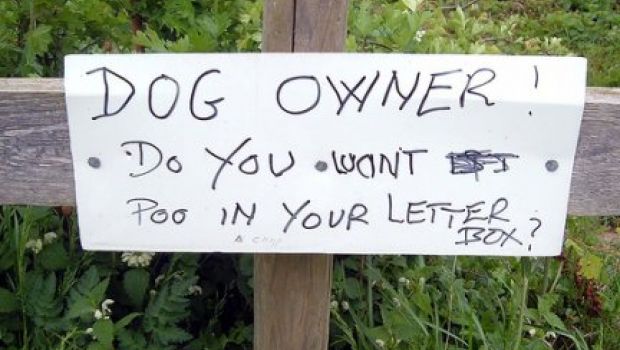 DOG OWNER!
Do You WANT
Poo IN YOUR LETTER
BOX?